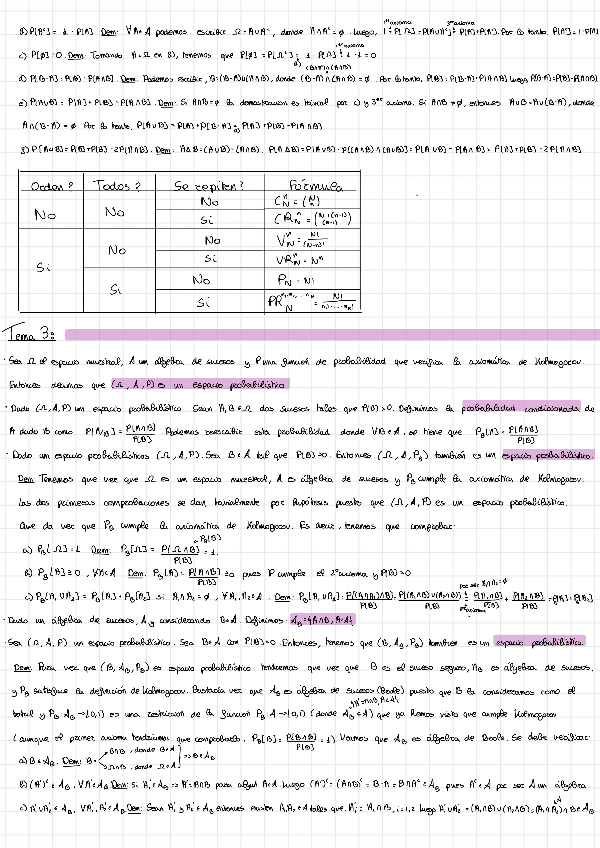 b) P[Aᶜ] = 1 - P[A]. Dem: ∀A∈A podemos escribir Ω = A∪Aᶜ, donde A∩Aᶜ = ∅. Luego, 1 = P[Ω] = P[A∪Aᶜ] = P[A] + P[Aᶜ]. Por lo tanto, P[Aᶜ] = 1 - P[A]
c) P[∅] = 0. Dem: Tomando A = Ω en b), tenemos que P[∅] = P[Ωᶜ] = 1 - P[Ω] = 1 - 1 = 0
d) P[B-A] = P[B] - P[A∩B]. Dem: Podemos escribir, B = (B-A)∪(A∩B), donde (B-A)∩(A∩B) = ∅. Por lo tanto, P[B] = P[B-A] + P[A∩B] luego P[B-A] = P[B] - P[A∩B]
e) P[A∪B] = P[A] + P[B] - P[A∩B]. Dem: Si A∩B = ∅ la demostración es trivial por c) y 3ᵉʳ axioma. Si A∩B ≠ ∅, entonces A∪B = A∪(B-A), donde
A∩(B-A) = ∅. Por lo tanto, P[A∪B] = P[A] + P[B-A] = P[A] + P[B] - P[A∩B]
g) P[A∆B] = P[A] + P[B] - 2P[A∩B]. Dem: A∆B = (A∪B) - (A∩B). P[A∆B] = P[A∪B] - P[(A∩B)∩(A∪B)] = P[A∪B] - P[A∩B] = P[A] + P[B] - 2P[A∩B]
Orden? Todos? Se repiten? Fórmula
No No No
Si
Si No No
Si VRₙⁿ = Nⁿ
Si No Pₙ = N!
Si
Tema 3:
· Sea Ω el espacio muestral, A un álgebra de sucesos y P una función de probabilidad que verifica la axiomática de Kolmogorov.
Entonces decimos que (Ω, A, P) es un espacio probabilístico
· Dado (Ω, A, P) un espacio probabilístico. Sean A, B ∈ Ω dos sucesos tales que P[B] > 0. Definimos la probabilidad condicionada de
A dado B como P[A/B] = P[A∩B]/P[B]. Podemos reescribir esta probabilidad donde ∀B∈A, se tiene que P_B[A] = P[A∩B]/P[B]
· Dado un espacio probabilístico (Ω, A, P). Sea B∈A tal que P[B] > 0. Entonces (Ω, A, P_B) también es un espacio probabilístico.
Dem: Tenemos que ver que Ω es un espacio muestral, A es álgebra de sucesos y P_B cumple la axiomática de Kolmogorov.
Las dos primeras comprobaciones se dan trivialmente por hipótesis puesto que (Ω, A, P) es un espacio probabilístico.
Que da ver que P_B cumple la axiomática de Kolmogorov. Es decir, tenemos que comprobar:
a) P_B[Ω] = 1. Dem: P_B[Ω] = P[Ω∩B]/P[B] = 1.
b) P_B[A] ≥ 0, ∀A∈A. Dem: P_B[A] = P[A∩B]/P[B] ≥ 0 pues P cumple el 2º axioma y P[B] > 0
c) P_B[A₁∪A₂] = P_B[A₁] + P_B[A₂] si A₁∩A₂ = ∅, ∀A₁,A₂∈A. Dem:
· Dado un álgebra de sucesos, A y considerando B∈A. Definimos A_B = {A∩B, A∈A}
· Sea (Ω, A, P) un espacio probabilístico. Sea B∈A con P[B] > 0. Entonces, tenemos que (B, A_B, P_B) también es un espacio probabilístico.
Dem: Para ver que (B, A_B, P_B) es espacio probabilístico tendremos que ver que B es el suceso seguro, A_B es álgebra de sucesos,
y P_B satisface la definición de Kolmogorov. Bastaría ver que A_B es álgebra de sucesos (Boole) puesto que B la consideramos como el
total y P_B: A_B → [0,1] es una restricción de la función P_B: A → [0,1] (donde A_B ⊂ A) que ya hemos visto que cumple Kolmogorov
(aunque el primer axioma tendríamos que comprobarlo. P_B[B] = P[B∩B]/P[B] = 1). Veamos que A_B es álgebra de Boole. Se debe verificar:
a) B∈A_B. Dem: B = B∩B, donde B∈A
Ω∩B, donde Ω∈A ⇒ B∈A_B
b) (A')ᶜ ∈ A_B, ∀A'∈A_B. Dem: Si A'∈A_B ⇒ A' = A∩B para algún A∈A luego (A')ᶜ = (A∩B)ᶜ = B-A = B∩Aᶜ ∈ A_B pues Aᶜ∈A por ser A un álgebra
c) A₁'∪A₂' ∈ A_B, ∀A₁',A₂'∈A_B. Dem: Sean A₁' y A₂' ∈ A_B entonces existen A₁,A₂∈A tales que A'ᵢ = Aᵢ∩B, i=1,2. luego A₁'∪A₂' = (A₁∩B)∪(A₂∩B) = (A₁∪A₂)∩B ∈ A_B